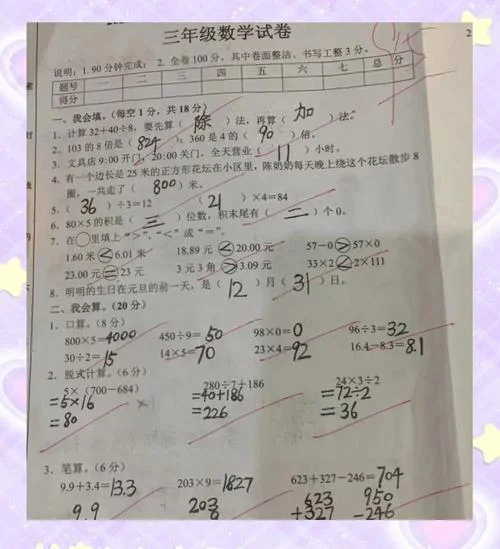 三年级数学试卷
说明：1.90分钟完成； 2. 全卷100分，其中卷面整洁、书写工整3分。
题号 一 二 三 四 五 六 七 总分
得分
一、我会填。(每空1分，共18分)
1. 计算32+40÷8，要先算（ 除 ）法，再算（ 加 ）法。
2. 103的8倍是（ 824 ）；360是4的（ 90 ）倍。
3. 文具店9:00开门，20:00关门，全天营业（ 11 ）小时。
4. 有一个边长是25米的正方形花坛在小区里，陈奶奶每天晚上绕这个花坛散步8
圈，一共走了（ 800 ）米。
5.（ 36 ）÷3=12 （ 21 ）×4=84
6. 80×5的积是（ 三 ）位数，积末尾有（ 二 ）个0。
7. 在○里填上“>”、“<”或“=”。
1.60米<6.01米 18.89元<20.00元 57-0>57×0
23.00元=23元 3元3角>3.09元 33×2<2×111
8. 明明的生日在元旦的前一天，是（ 12 ）月（ 31 ）日。
二、我会算。(20分)
1. 口算。(8分)
800×5=4000 450÷9=50 98×0=0 96÷3=32
30÷2=15 14×5=70 23×4=92 16.4-8.3=8.1
2. 脱式计算。(6分)
5×（700-684） 280÷7+186 24×3÷2
=5×16 =40+186 =72÷2
=80 =226 =36
3. 笔算。(6分)
9.9+3.4=13.3 203×9=1827 623+327-246=704
9.9 203 623 950
+327 -246